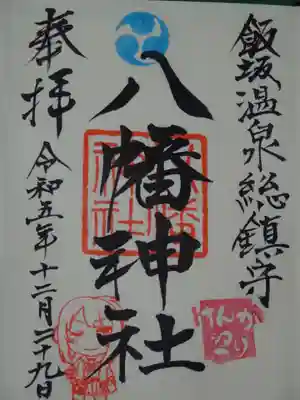 飯坂温泉総鎮守
八幡神社
奉拝
令和五年十二月二十九日
けんか